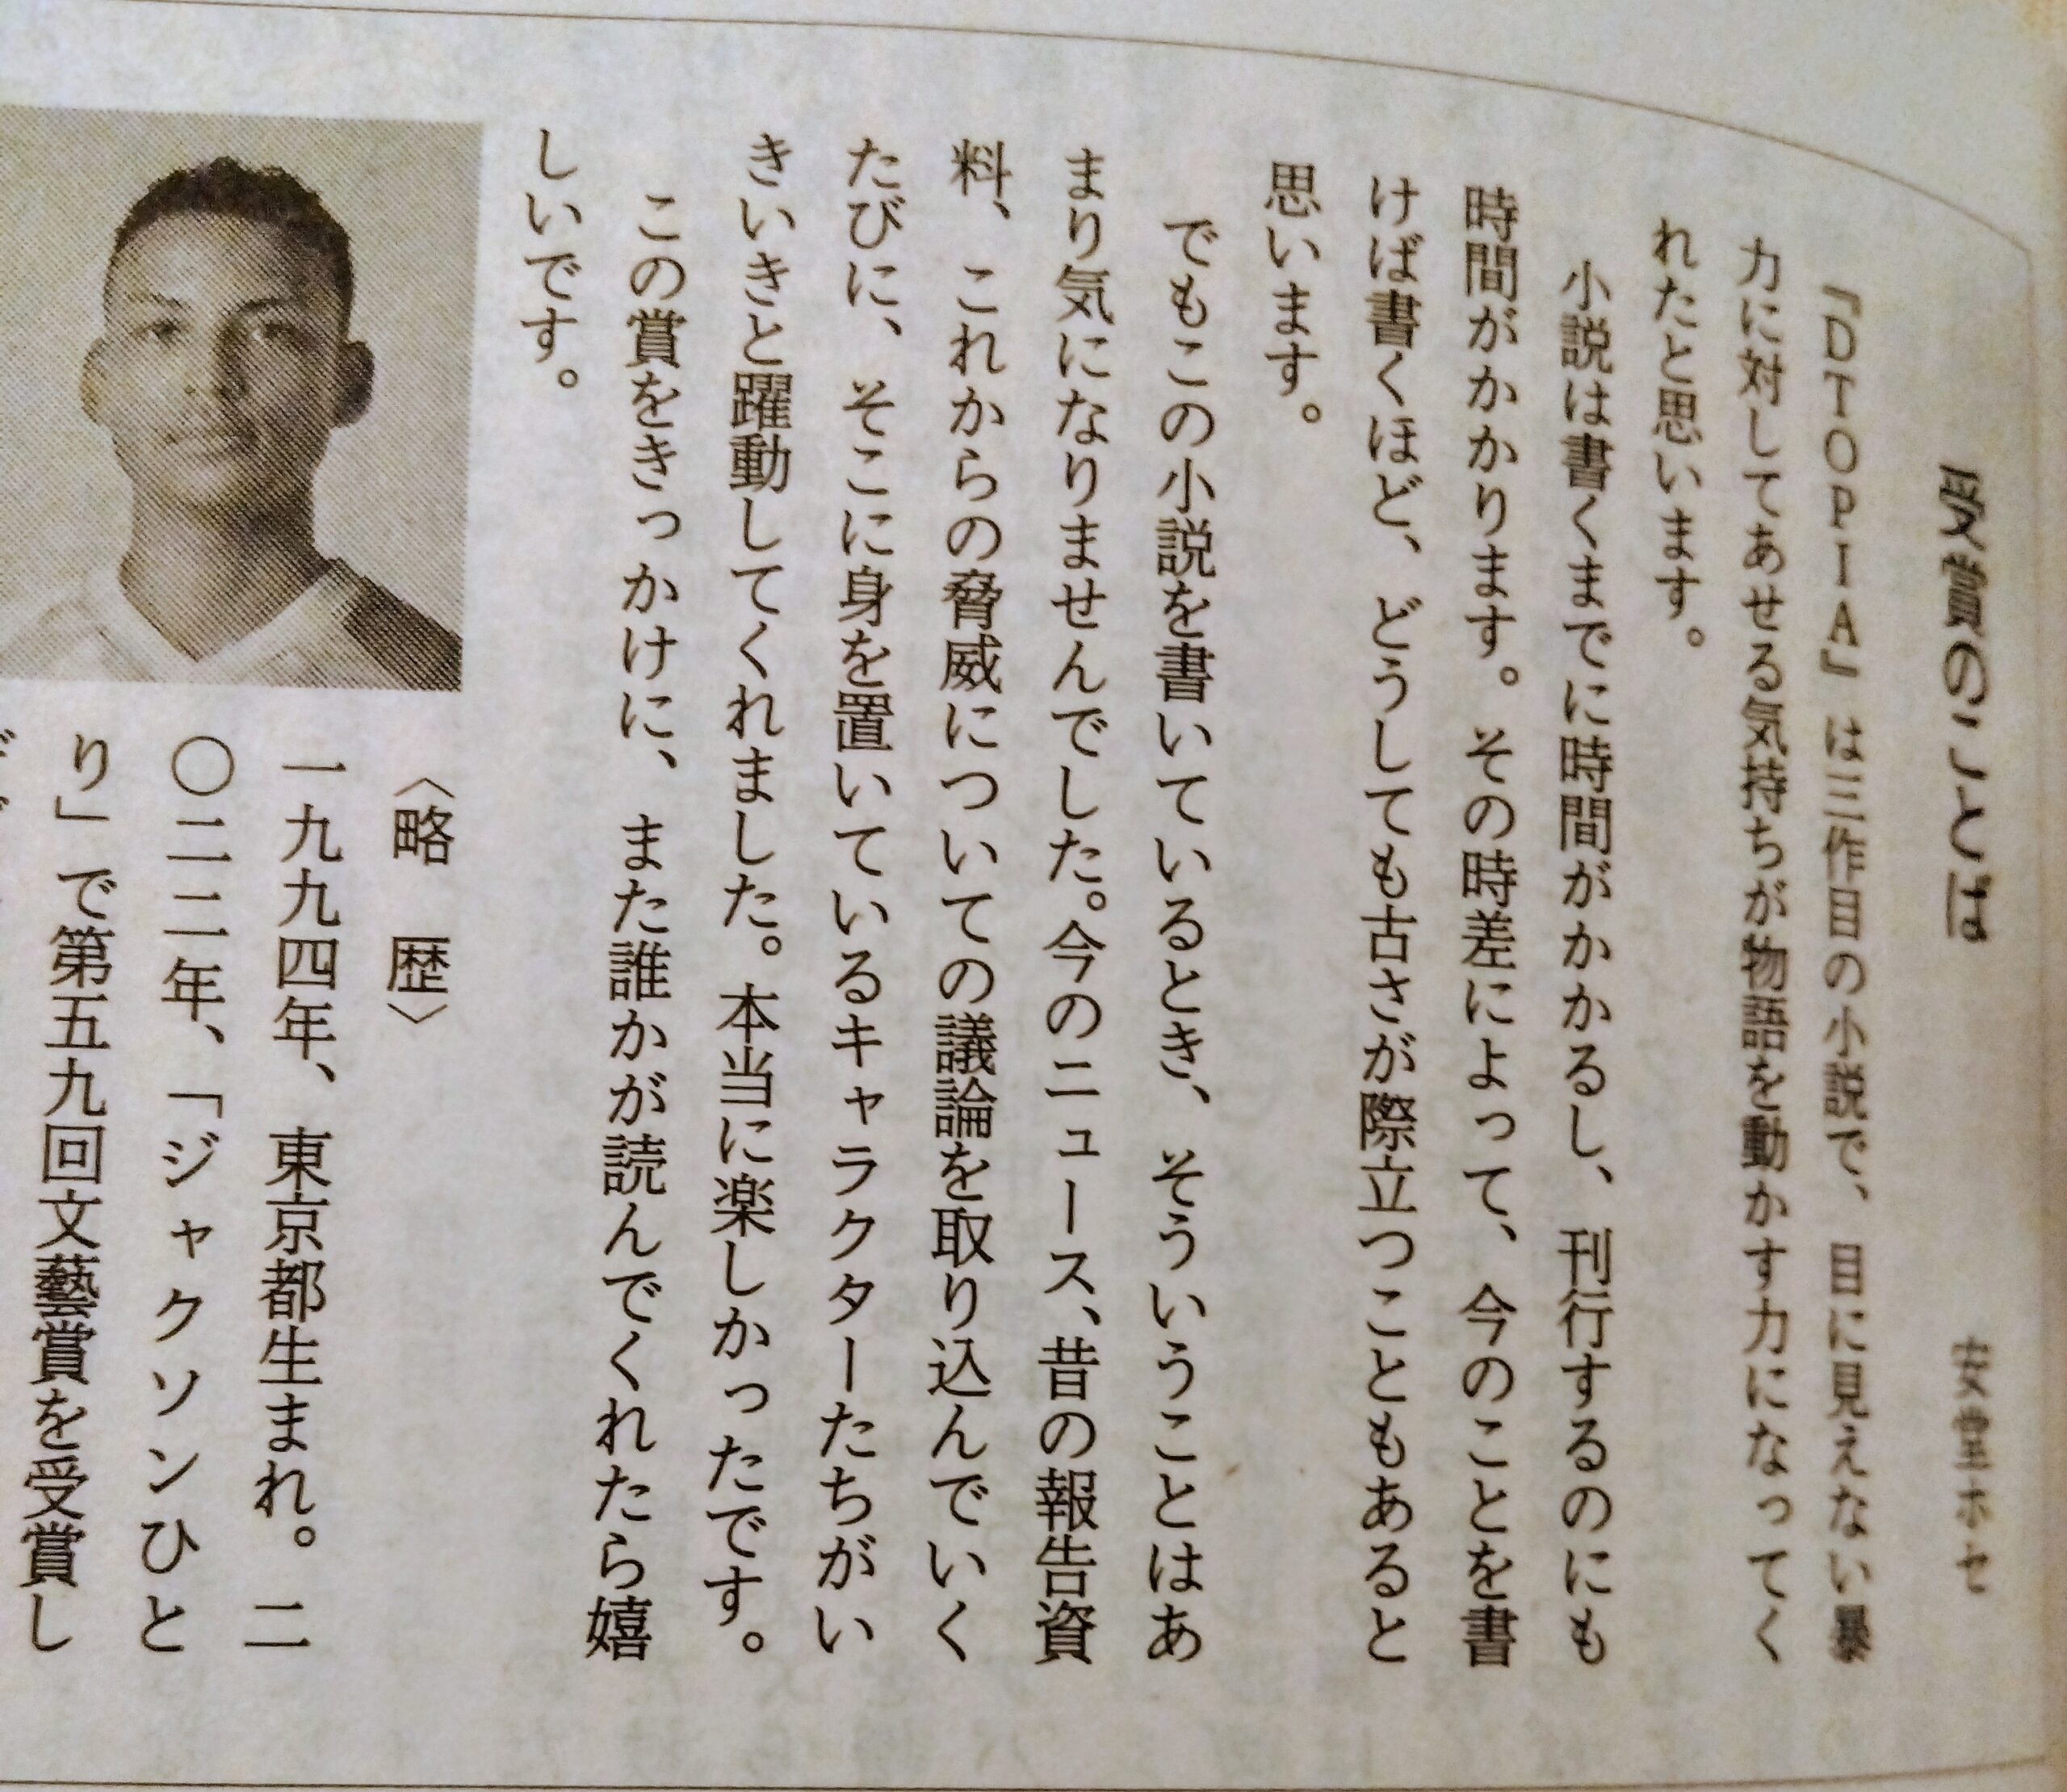 受賞のことば　安堂ホセ
『DTOPIA』は三作目の小説で、目に見えない暴
力に対してあせる気持ちが物語を動かす力になってく
れたと思います。
小説は書くまでに時間がかかるし、刊行するのにも
時間がかかります。その時差によって、今のことを書
けば書くほど、どうしても古さが際立つこともあると
思います。
でもこの小説を書いているとき、そういうことはあ
まり気になりませんでした。今のニュース、昔の報告資
料、これからの脅威についての議論を取り込んでいく
たびに、そこに身を置いているキャラクターたちがい
きいきと躍動してくれました。本当に楽しかったです。
この賞をきっかけに、また誰かが読んでくれたら嬉
しいです。
〈略　歴〉
一九九四年、東京都生まれ。二
〇二二年、「ジャクソンひと
り」で第五九回文藝賞を受賞し